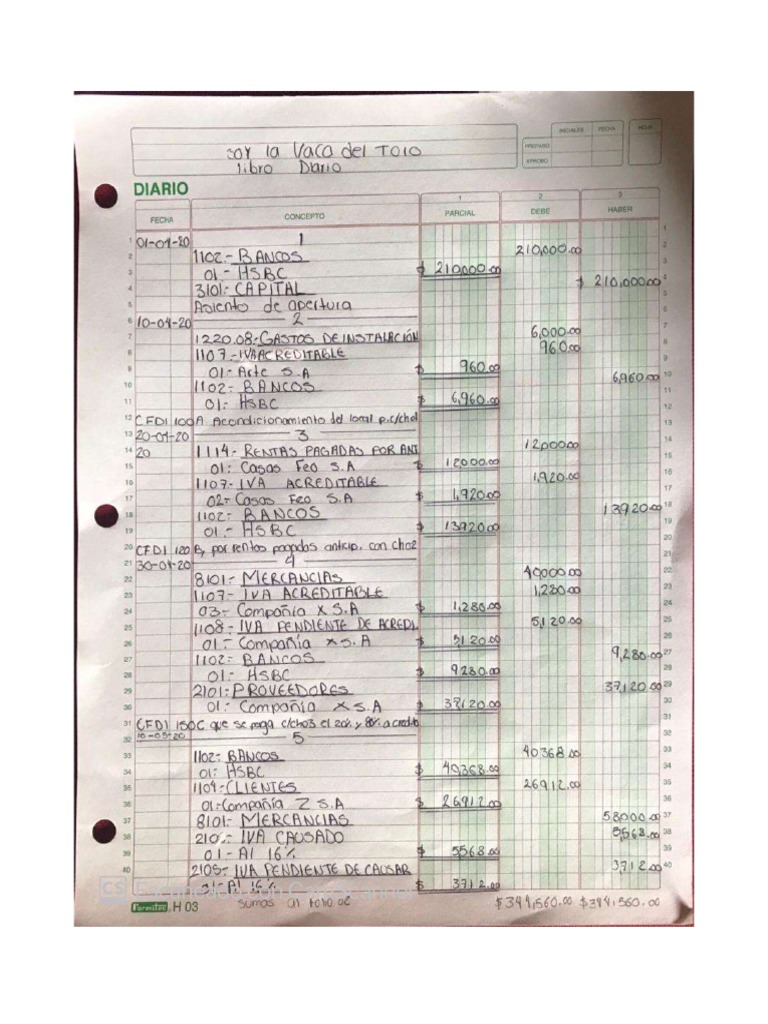 INICIALES FECHA HOJA
soy la Vaca del Toro
libro Diario
PREPARO
APROBO
DIARIO
1 2 3
FECHA CONCEPTO PARCIAL DEBE HABER
1 01-04-20 1
2 1102.- BANCOS 210,000.00
3 01.- HSBC $ 210,000.00
4 3101.- CAPITAL $ 210,000.00
5 Asiento de apertura
6 10-04-20 2
7 1220.08.- GASTOS DE INSTALACIÓN 6,000.00
8 1107.- IVA ACREDITABLE 960.00
9 01.- Arte S.A $ 960.00
10 1102.- BANCOS 6,960.00
11 01.- HSBC $ 6,960.00
12 CFDI 100A Acondicionamiento del local p.c/cho1
13 20-04-20 3
14 20 1114.- RENTAS PAGADAS POR ANT 12,000.00
15 01.- Casas Feo S.A $ 12000.00
16 1107.- IVA ACREDITABLE 1,920.00
17 02.- Casas Feo S.A $ 1,920.00
18 1102.- BANCOS 13920.00
19 01.- HSBC $ 13920.00
20 CFDI 120 B, por rentas pagadas anticip. con cho2
21 30-04-20 4
22 8101.- MERCANCIAS 40000.00
23 1107.- IVA ACREDITABLE 1,280.00
24 03.- Compañia X S.A $ 1,280.00
25 1108.- IVA PENDIENTE DE ACREDI. 5,120.00
26 01.- Compañia X S.A $ 5,120.00
27 1102.- BANCOS 9,280.00
28 01.- HSBC $ 9280.00
29 2101.- PROVEEDORES 37,120.00
30 01.- Compañia X S.A $ 37,120.00
31 CFDI 150C que se paga c/cho3 el 20% y 80% a credito
32 10-05-20 5
33 1102.- BANCOS 40368.00
34 01.- HSBC $ 40368.00
35 1104.- CLIENTES 26912.00
36 01.- Compañia Z S.A $ 26912.00
37 8101.- MERCANCIAS 58000.00
38 IVA CAUSADO 5568.00
39 01.- Al 16% $ 5568.00
40 2105.- IVA PENDIENTE DE CAUSAR 3712.00
01.- Al 16% $ 3712.00
CS Escaneado con CamScanner
Formatec H 03 sumas al folio 02 $344,560.00 $344,560.00